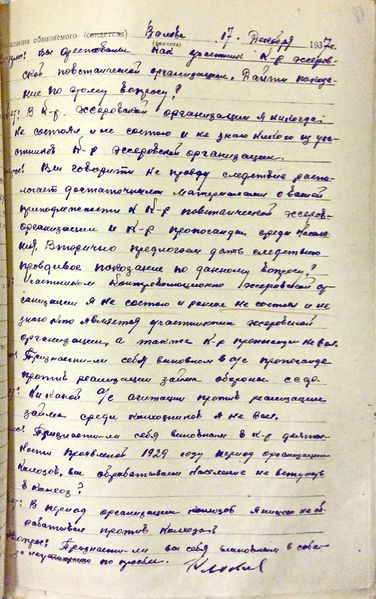 показания обвиняемого (свидетеля) 17 Декабря 1937 г.
Вопрос: Вы арестованы как участник К-р эсеров-
ской повстанческой организации. Дайте показа-
ние по этому вопросу?
Ответ: В К-р. эсеровской организации я никогда
не состоял и не состою и не знаю никого из уча-
стников К-р эсеровской организации.
Вопрос: Вы говорите не правду следствие распо-
лагает достаточными материалами о вашей
принадлежности к К-р повстанческой эсеров.
организации и К-р пропаганды среди населе-
ния. Вторично предлагаем дать следствию
правдивое показание по данному вопросу?
Ответ: Участником Контрреволюционной эсеровской ор-
ганизации я не состою и ранее не состоял и не
знаю кто является участником эсеровской
организации, а также К-р пропаганды не вел.
Вопрос: Признаете-ли себя виновным в а/с пропаганде
против реализации займа обороны
Ответ: Никакой а/с агитации против реализации
займа среди колхозников я не вел.
Вопрос: Признаете-ли себя виновным в К-р деятель-
ности проявленой 1929 году период организации
колхозов, вы обрабатывали население не вступать
в колхоз?
Ответ: В период организации колхозов я никого не об-
рабатывал против колхозов
Вопрос: Признаете-ли вы себя виновным в